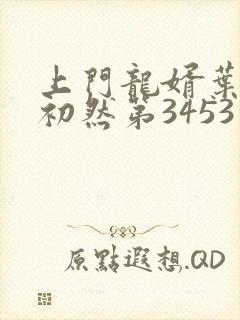 上門龍婿葉
初然第3453
原點遐想.QD